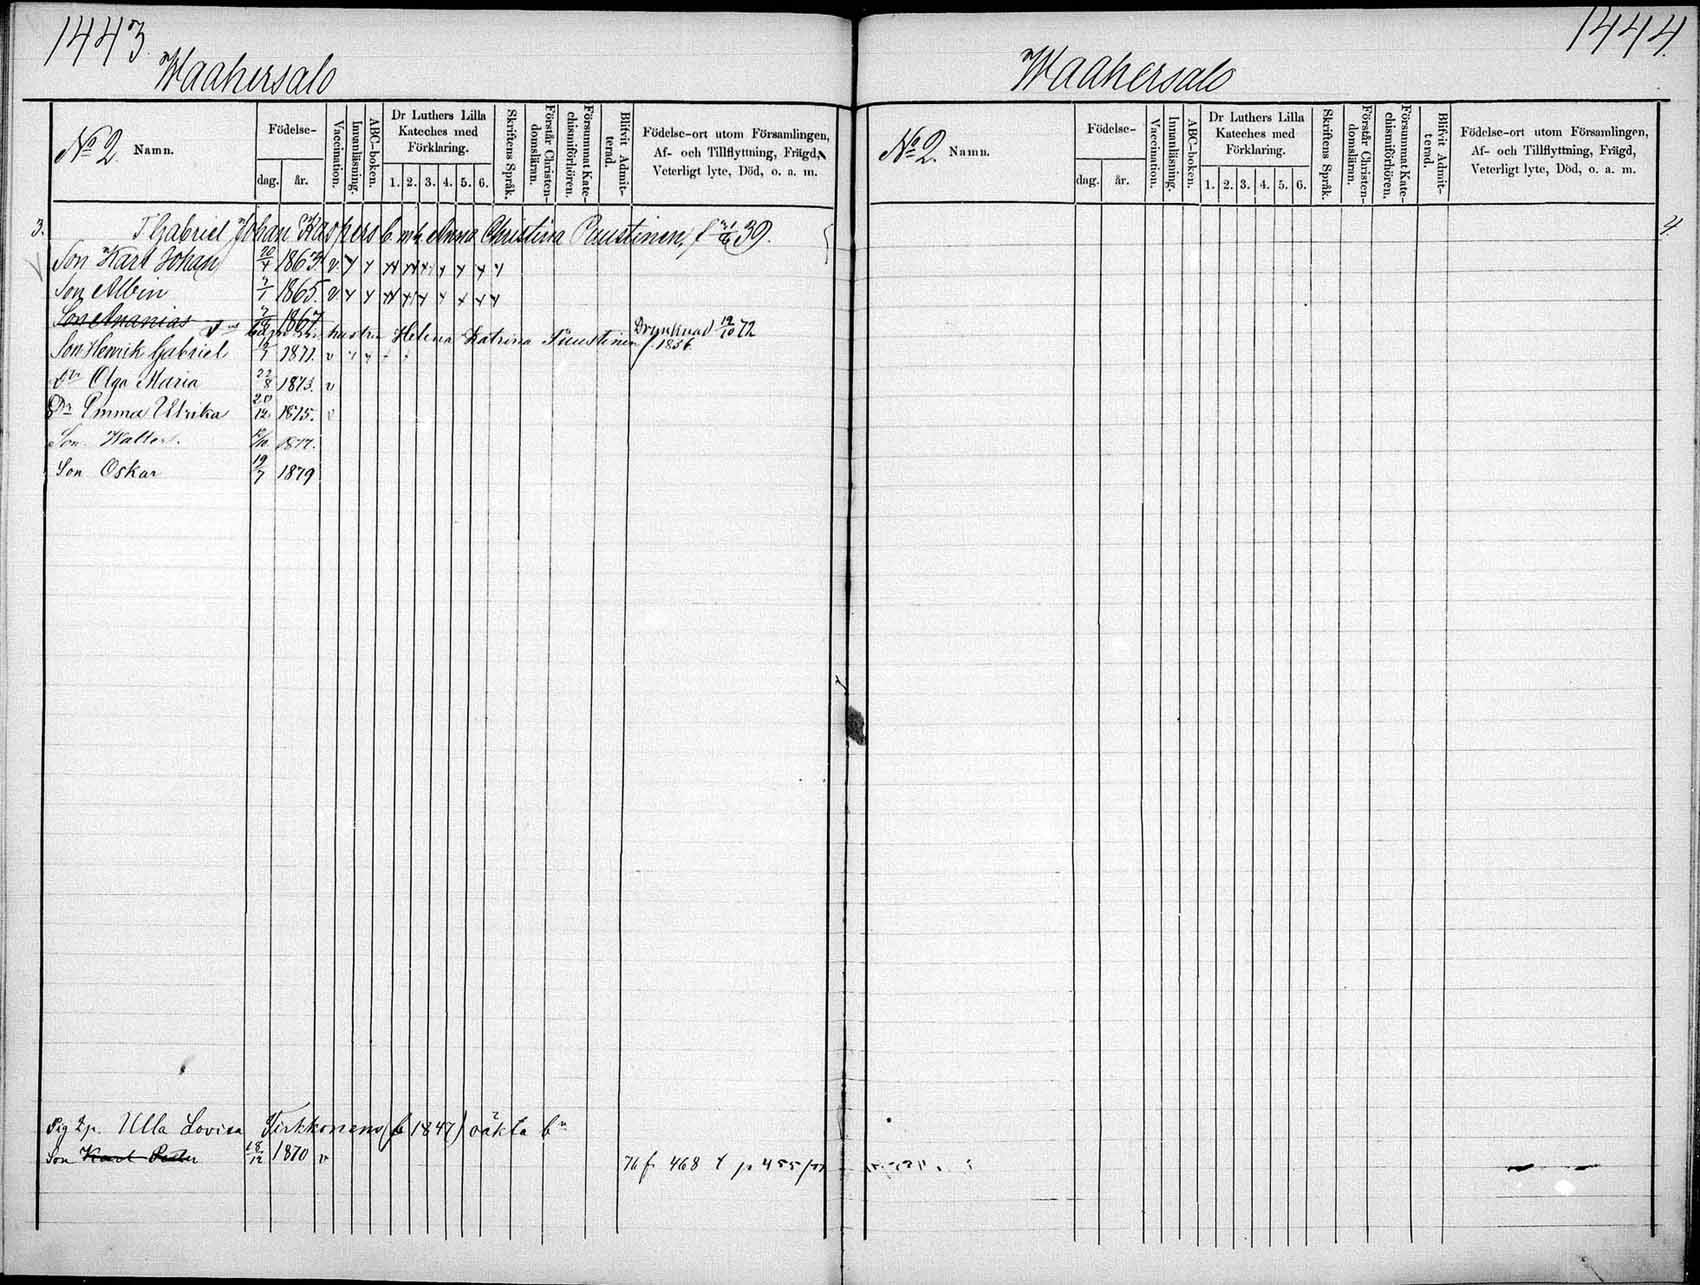 1443.
Waahersalo
No 2 Namn.
Födelse-
dag. år.
Vaccination.
Innanläsning.
ABC-boken.
Dr Luthers Lilla
Kateches med
Förklaring.
1. 2. 3. 4. 5. 6.
Skriftens Språk.
Förstår Christen-
domsläran.
Försummat Kate-
chismiförhören.
Blifvit Admit-
terad.
Födelse-ort utom Församlingen,
Af- och Tillflyttning, Frägd,
Veterligt lyte, Död, o. a. m.
3. T. Gabriel Johan Kaspers b. m. h. Anna Christina Puustinen, f 39.
Son Karl Johan 1863 v
Son Albin 1865. v
Son Ananias 1867 Drunknad 19/10 72
hustru Helena Katrina Puustinen f. 1836
Son Henrik Gabriel 1871. v
Dr Olga Maria 22/8 1873. v
Dr Emma Ulrika 20/12 1875. v
Son Walter. 1877.
Son Oskar 19/7 1879
Pig Ulla Lovisa Kirkkonens (f 1847) oäkta bn
Son Karl Peter 18/12 1870 v
76 fr 468 t p 455
1444.
Waahersalo
No 2. Namn.
Födelse-
dag. år.
Vaccination.
Innanläsning.
ABC-boken.
Dr Luthers Lilla
Kateches med
Förklaring.
1. 2. 3. 4. 5. 6.
Skriftens Språk.
Förstår Christen-
domsläran.
Försummat Kate-
chismiförhören.
Blifvit Admit-
terad.
Födelse-ort utom Församlingen,
Af- och Tillflyttning, Frägd,
Veterligt lyte, Död, o. a. m.
4.